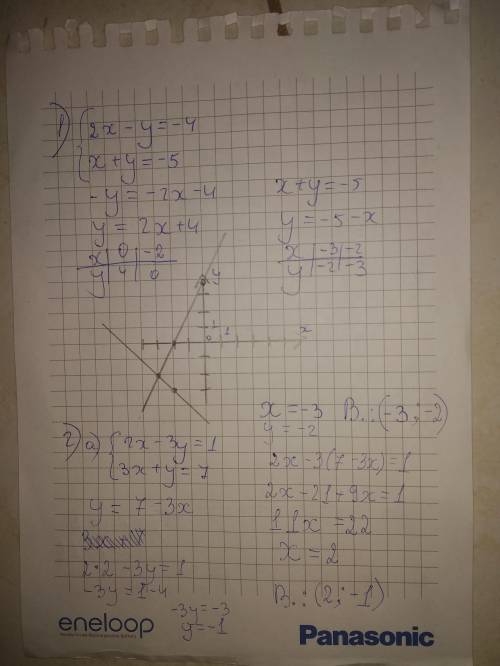 1) { 2x - y = -4
{ x + y = -5
-y = -2x - 4
y = 2x + 4
x | 0 | -2
y | 4 | 0
x + y = -5
y = -5 - x
x | -3 | -2
y | -2 | -3
y
1
0 1 x
x = -3 В.: (-3 ; -2)
y = -2
2) а) { 2x - 3y = 1
{ 3x + y = 7
y = 7 - 3x
2·2 - 3y = 1
-3y = 1 - 4
-3y = -3
y = -1
2x - 3(7 - 3x) = 1
2x - 21 + 9x = 1
11x = 22
x = 2
В.: (2 ; -1)
eneloop
Panasonic